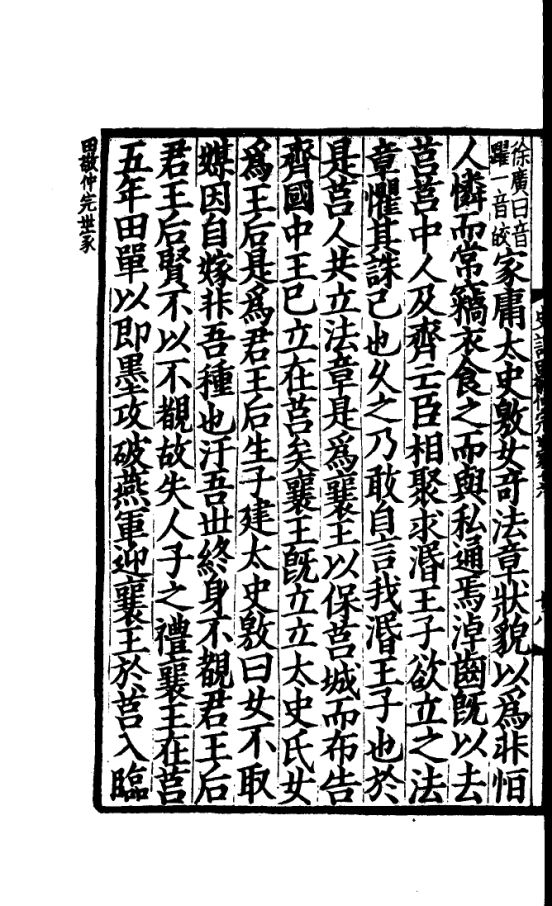 徐廣曰音
躍一音皎
家庸太史敫女奇法章狀貌以爲非怕
人憐而常竊衣食之而與私通焉淖齒旣以去
莒莒中人及齊亡臣相聚求湣王子欲立之法
章懼其誅己也乆之乃敢自言我湣王子也於
是莒人共立法章是爲襄王以保莒城而布告
齊國中王已立在莒矣襄王旣立立太史氏女
爲王后是爲君王后生子建太史敫曰女不取
媒因自嫁非吾種也汙吾世終身不覩君王后
君王后賢不以不覩故失人子之禮襄王在莒
五年田單以即墨攻破燕軍迎襄王於莒入臨
田敬仲完世家